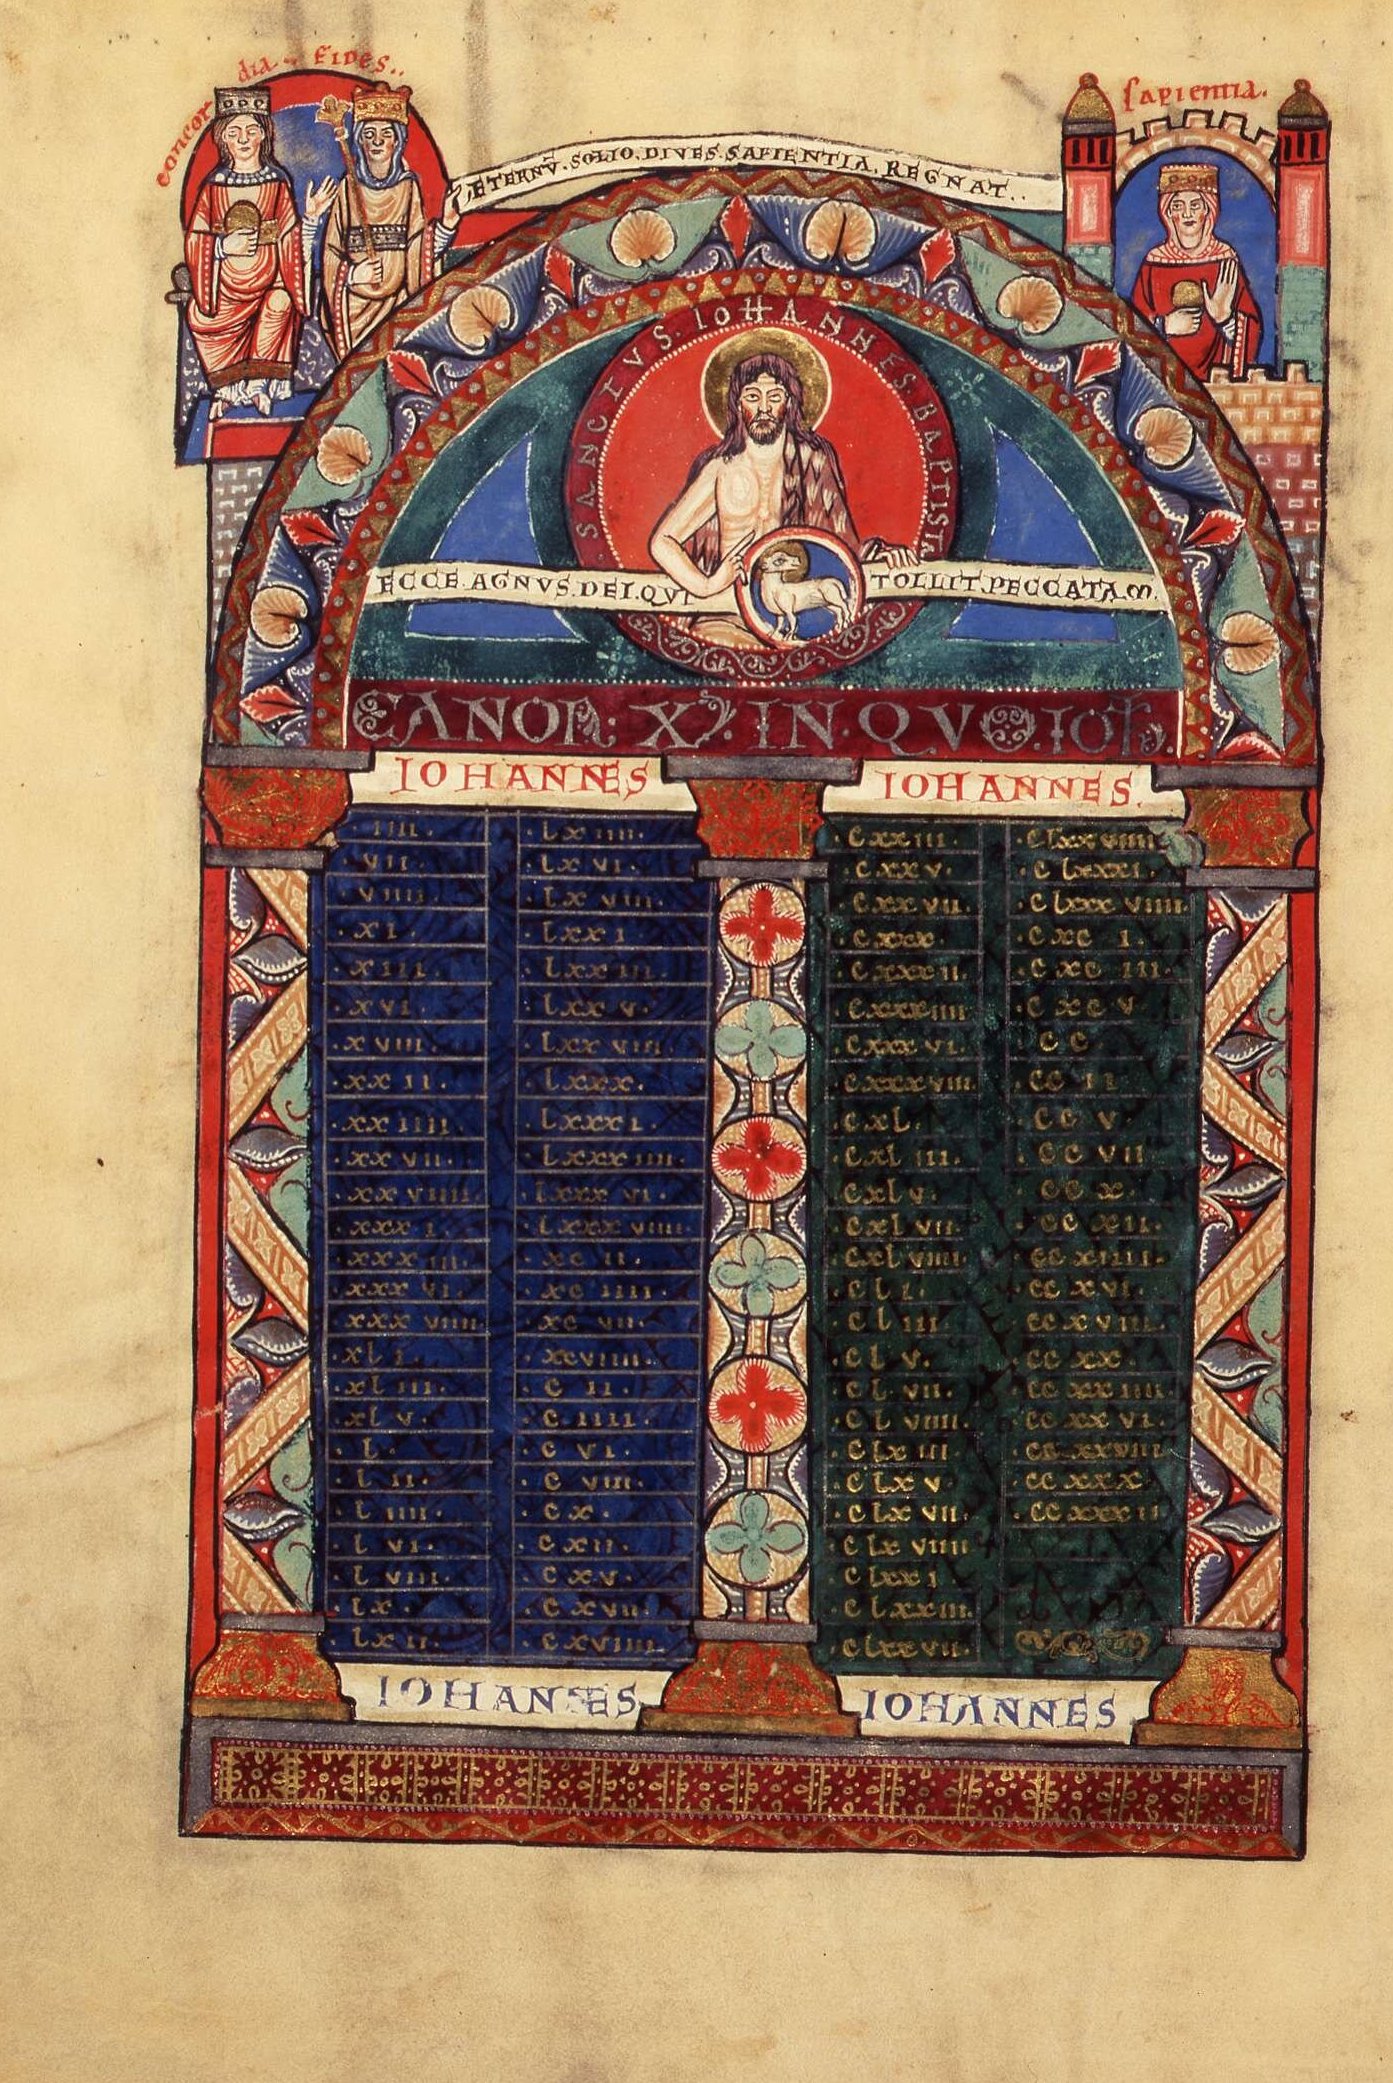 concor
dia. Fides..
Sapientia.
ÆTERNV̄. SOLIO. DIVES. SAPIENTIA. REGNAT..
SANCTVS. IOHANNES. BAPTISTA
ECCE. AGNVS. DEI. QVI TOLLIT. PECCATA. M.
CANON. X. IN. QVO. IOH̄.
IOHANNES IOHANNES.
.IIII. .LXIIII. .CXXIII. .CLXXVIIII.
.VII. .LXVI. .CXXV. .CLXXXI.
.VIIII. .LXVIII. .CXXVII. .CLXXXVIIII.
.XI. .LXXI. .CXXX. .CXCI.
.XIII. .LXXIII. .CXXXII. .CXCIII.
.XVI. .LXXV. .CXXXIIII. .CXCV.
.XVIII. .LXXVIII. .CXXXVI. .CC.
.XXII. .LXXX. .CXXXVIII. .CCII.
.XXIIII. .LXXXI. .CXL. .CCV.
.XXVII. .LXXXIIII. .CXLIII. .CCVII.
.XXVIIII. .LXXXVI. .CXLV. .CCX.
.XXXI. .LXXXVIIII. .CXLVII. .CCXII.
.XXXIII. .XCII. .CXLVIIII. .CCXIIII.
.XXXVI. .XCIIII. .CLI. .CCXVI.
.XXXVIIII. .XCVII. .CLIII. .CCXVIII.
.XLI. .XCVIIII. .CLV. .CCXX.
.XLIII. .CII. .CLVII. .CCXXIIII.
.XLV. .CIIII. .CLVIIII. .CCXXVI.
.L. .CVI. .CLXIII. .CCXXVIII.
.LII. .CVIII. .CLXV. .CCXXX.
.LIIII. .CX. .CLXVII. .CCXXXII.
.LVI. .CXII. .CLXVIIII.
.LVIII. .CXV. .CLXXI.
.LX. .CXVII. .CLXXIII.
.LXII. .CXVIIII. .CLXXVII.
IOHANNES IOHANNES